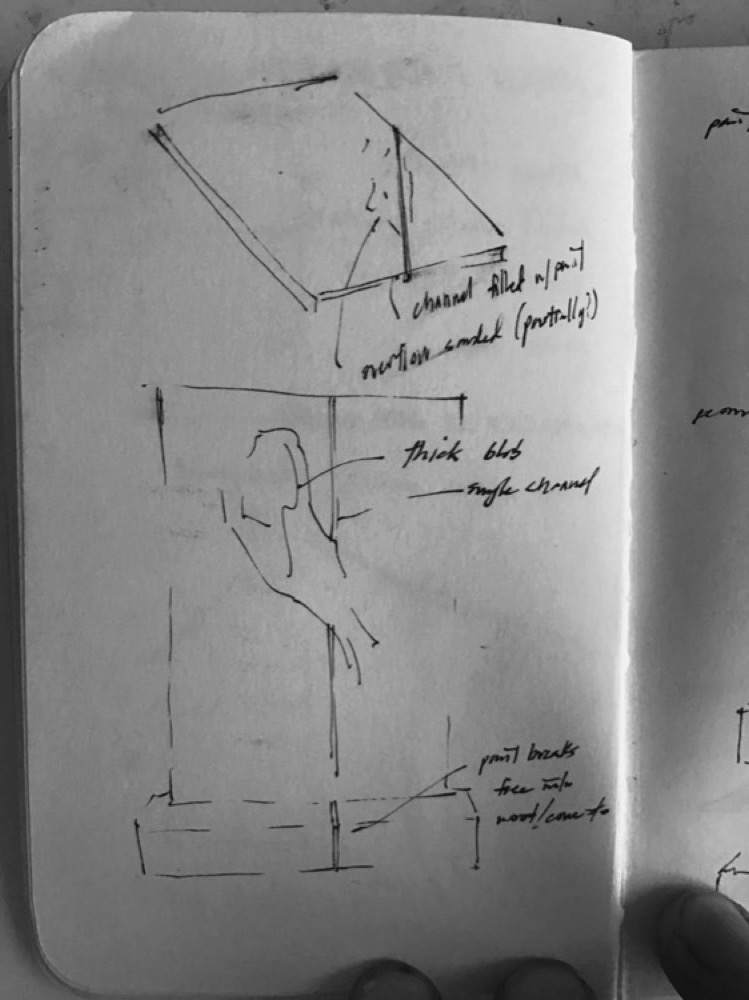 channel filled w/ paint
overflow sanded (partially?)
thick blob
single channel
paint breaks
free into
wood/concrete